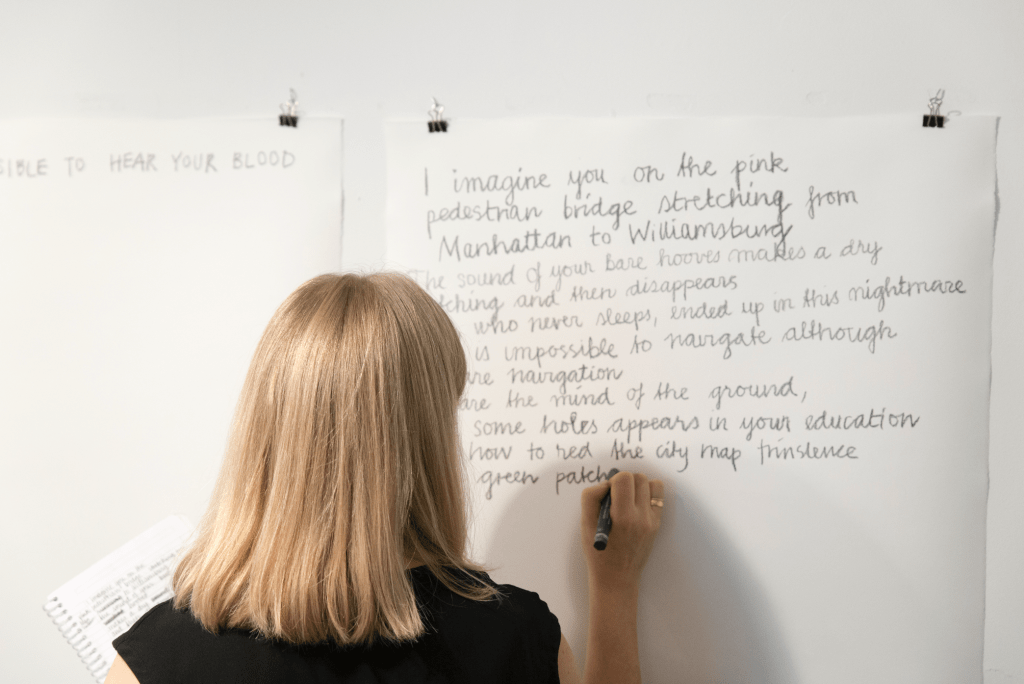 SIBLE TO HEAR YOUR BLOOD
I imagine you on the pink
pedestrian bridge stretching from
Manhattan to Williamsburg
The sound of your bare hooves makes a dry
tching and then disappears
who never sleeps, ended up in this nightmare
is impossible to navigate although
are navigation
are the mind of the ground,
some holes appears in your education
how to red the city map frinstence
green patch